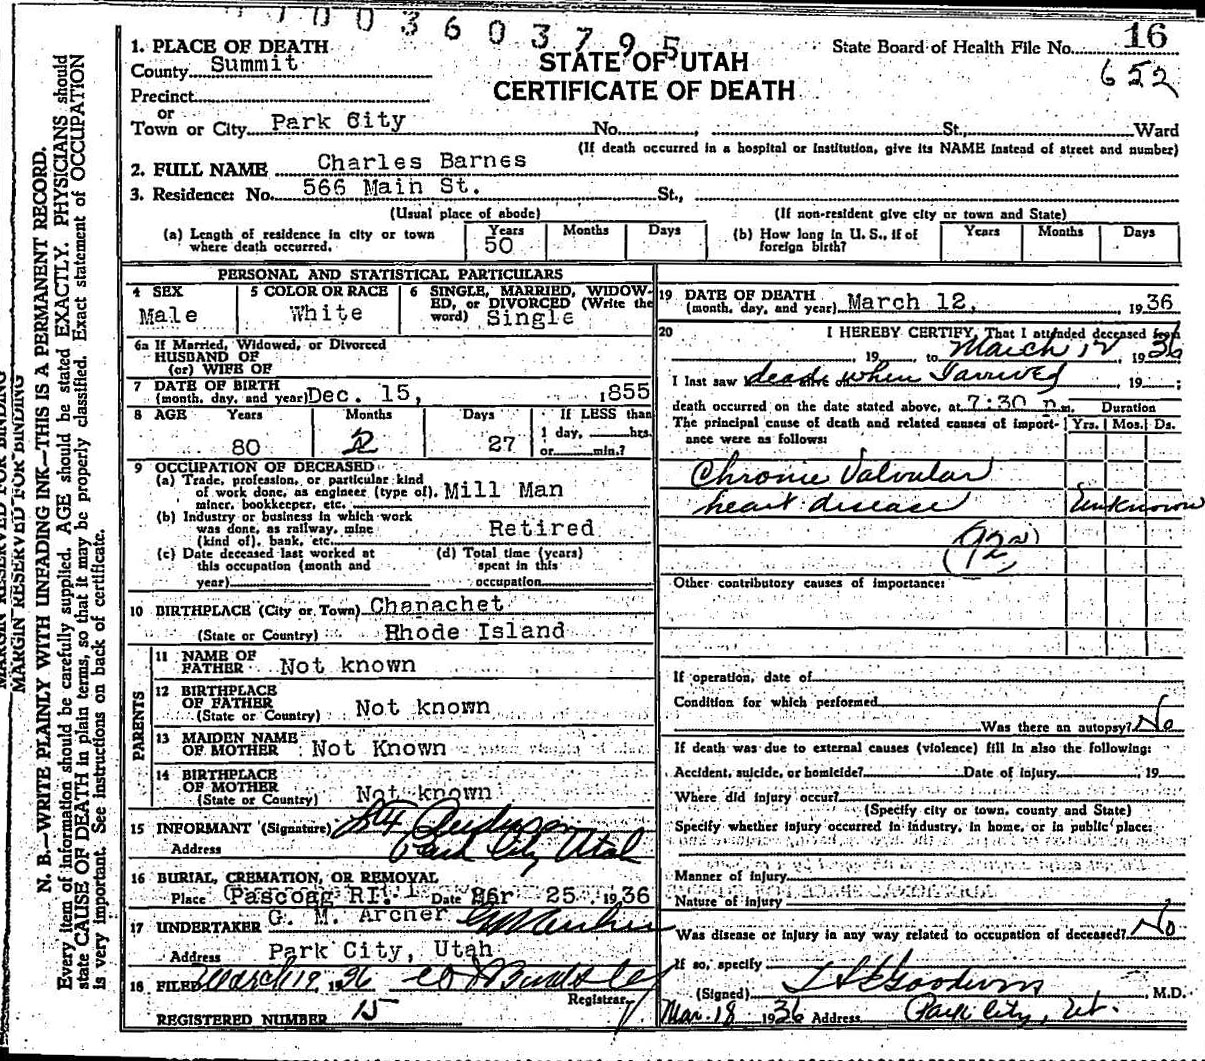 1003603795
State Board of Health File No. 16
652
STATE OF UTAH
CERTIFICATE OF DEATH
1. PLACE OF DEATH
County Summit
Precinct
or
Town or City Park City No. , St., Ward
(If death occurred in a hospital or institution, give its NAME instead of street and number)
2. FULL NAME Charles Barnes
3. Residence: No. 566 Main St. St.,
(Usual place of abode) (If non-resident give city or town and State)
(a) Length of residence in city or town where death occurred. Years 50 Months Days
(b) How long in U. S., if of foreign birth? Years Months Days
PERSONAL AND STATISTICAL PARTICULARS
4 SEX Male
5 COLOR OR RACE White
6 SINGLE, MARRIED, WIDOWED, or DIVORCED (Write the word) Single
6a If Married, Widowed, or Divorced
HUSBAND OF
(or) WIFE OF
7 DATE OF BIRTH
(month, day, and year) Dec. 15, 1855
8 AGE Years 80 Months 2 Days 27 If LESS than 1 day, hrs. or min.?
9 OCCUPATION OF DECEASED
(a) Trade, profession, or particular kind of work done, as engineer (type of), miner, bookkeeper, etc. Mill Man
(b) Industry or business in which work was done, as railway, mine (kind of), bank, etc. Retired
(c) Date deceased last worked at this occupation (month and year)
(d) Total time (years) spent in this occupation
10 BIRTHPLACE (City or Town) Chanachet
(State or Country) Rhode Island
PARENTS
11 NAME OF FATHER Not known
12 BIRTHPLACE OF FATHER
(State or Country) Not known
13 MAIDEN NAME OF MOTHER Not Known
14 BIRTHPLACE OF MOTHER
(State or Country) Not known
15 INFORMANT (Signature)
Address Park City Utah
16 BURIAL, CREMATION, OR REMOVAL
Place Pascoag RI. Date Mar 25 1936
17 UNDERTAKER G. M. Archer GM Archer
Address Park City, Utah
18 FILED March 19, 1936
Registrar.
REGISTERED NUMBER 15
19 DATE OF DEATH
(month, day, and year) March 12, 1936
20 I HEREBY CERTIFY, That I attended deceased from
, 19 to March 12 1936
I last saw dead when I arrived , 19 ;
death occurred on the date stated above, at 7:30 p.m. Duration
The principal cause of death and related causes of importance were as follows: Yrs. Mos. Ds.
Chronic Valvular
heart disease Unknown
Other contributory causes of importance:
If operation, date of
Condition for which performed
Was there an autopsy? No
If death was due to external causes (violence) fill in also the following:
Accident, suicide, or homicide? Date of injury , 19
Where did injury occur?
(Specify city or town, county and State)
Specify whether injury occurred in industry, in home, or in public place:
Manner of injury
Nature of injury
Was disease or injury in any way related to occupation of deceased? No
If so, specify
(Signed) Goodwin , M.D.
Mar. 18 1936 Address Park City, Ut.
MARGIN RESERVED FOR BINDING
MARGIN RESERVED FOR BINDING
N. B.—WRITE PLAINLY WITH UNFADING INK—THIS IS A PERMANENT RECORD.
Every item of information should be carefully supplied. AGE should be stated EXACTLY. PHYSICIANS should
state CAUSE OF DEATH in plain terms, so that it may be properly classified. Exact statement of OCCUPATION
is very important. See instructions on back of certificate.